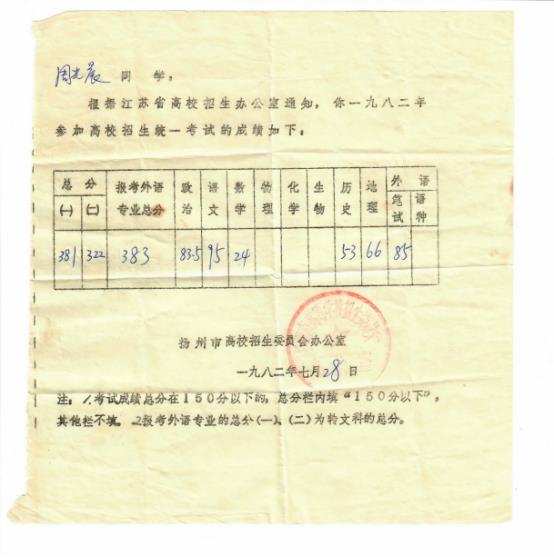 周光晨 同学：
根据江苏省高校招生办公室通知，你一九八二年
参加高校招生统一考试的成绩如下：
总分 报考外语专业总分 政治 语文 数学 物理 化学 生物 历史 地理 外语
(一) (二) 笔试 语种
381 322 383 83.5 95 24 53 66 85
扬州市高校招生委员会办公室
一九八二年七月28日
注：1.考试成绩总分在150分以下的，总分栏内填“150分以下”，
其他栏不填。2.报考外语专业的总分(一)、(二)为转文科的总分。